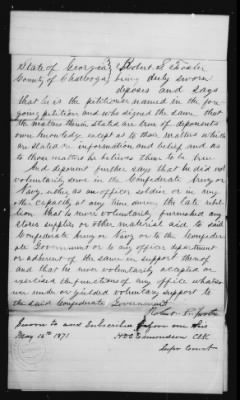 State of Georgia } Robert S. Foster
County of Chattooga } being duly sworn
deposes and says
that he is the petitioner named in the fore
going petition and who signed the same that
the matters therein stated are true of deponents
own knowledge except as to those matters which
are stated on information and belief and as
to those matters he believes them to be true
And deponent further says that he did not
voluntarily serve in the Confederate Army or
Navy either as an officer soldier or in any
other capacity at any time during the late rebel
lion that he never voluntarily furnished any
stores supplies or other material aid to said
Confederate Army or Navy or to the Confeder
ate Government or to any officer department
or adherent of the same in support thereof
and that he never voluntarily accepted or
exercised the functions of any office whatso
ever under or yielded voluntary support to
the said Confederate Government
Robert S. Foster
Sworn to and Subscribed before me this
May 16th 1871 Edmondson Clk
Supr Court